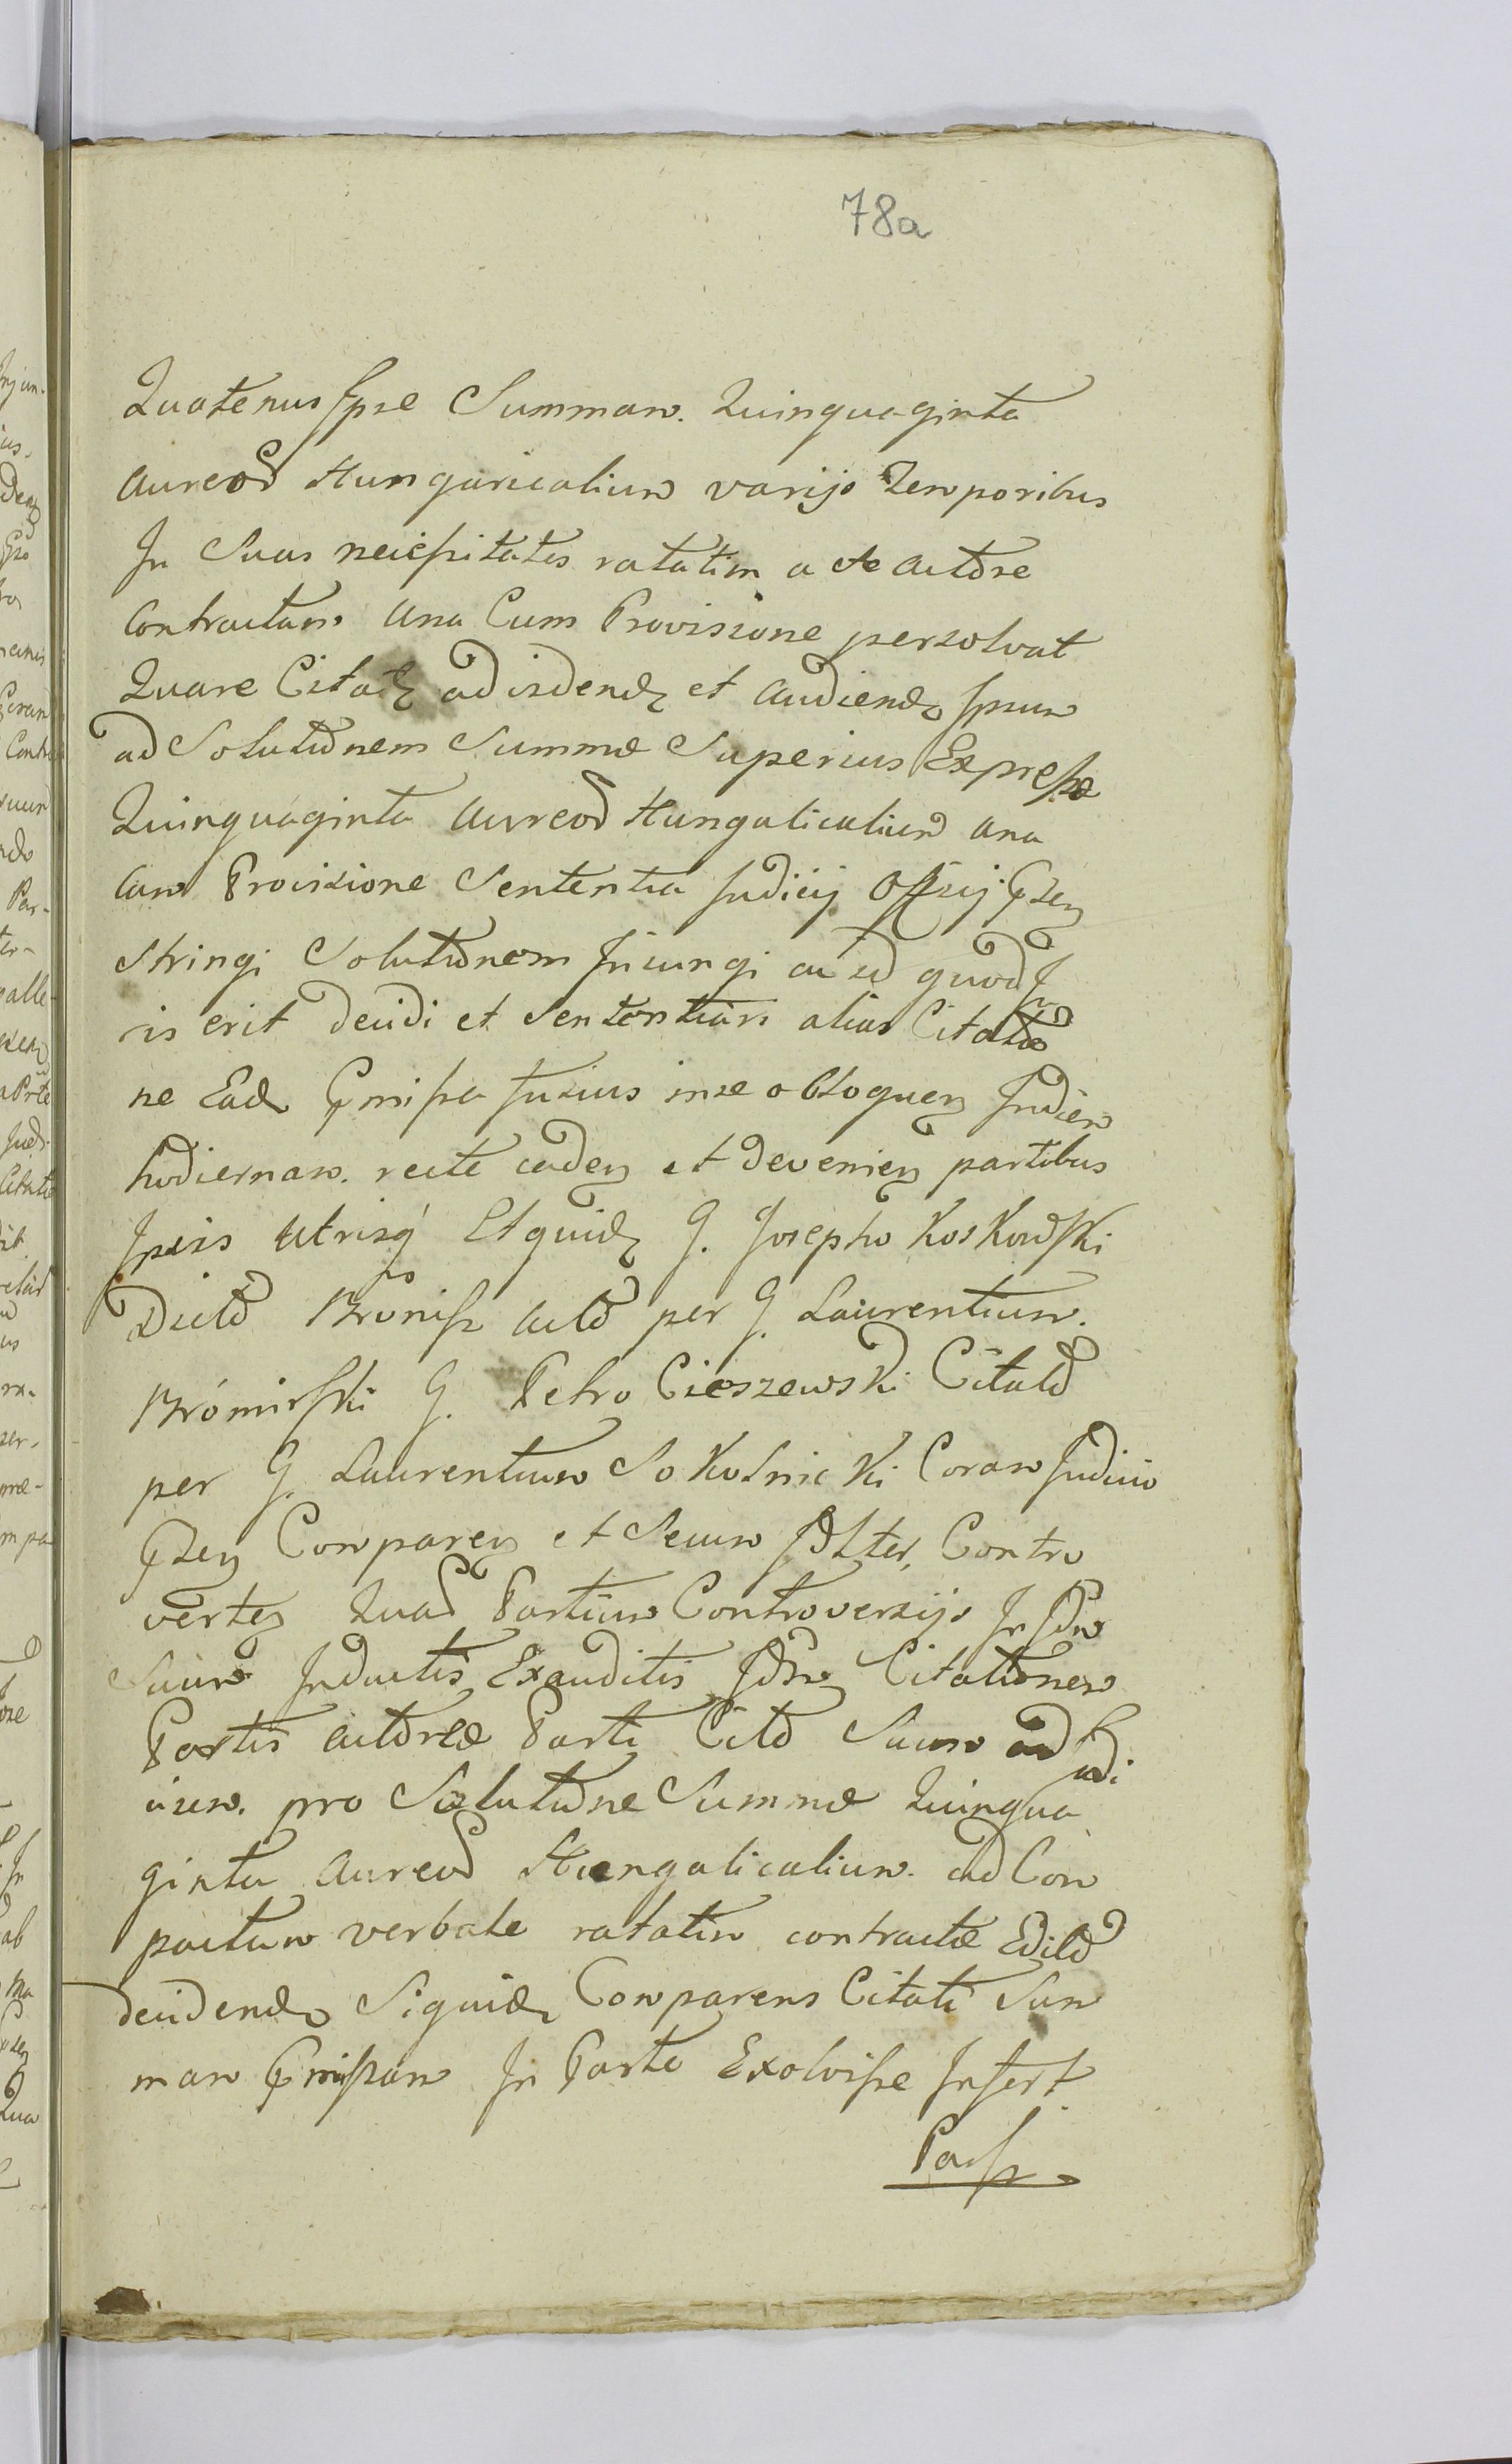 78a
Quatenus Ipse Summam. Quinquaginta
Aureor Hungaricalium varijs Temporibus
In Suas neiessitates ratatim a te Actore
Contractam una Cum Provisione persolvat
Quare Citatq ad videndq et audiendo Ipsum
ad Solutionem Summæ Superius Expressæ
Quinquaginta Aureor Hungalicalium una
cum Provisione Sententia Judicij Officij
stringi Solutionem Iniungi ac id quod Iu
ris erit decidi et Sententiam alias Citatio
ne Ead Pmissa fusius in se obloquen Indiem
hodiernam. recte caden et devenien partibus
Ipsis utrisq Et quidq G. Josepho Koskowski
Actō per G. Laurentium.
Bromirski G. Petro Cieszewski Citatō
per G. Laurentium Sokolnicki Coram Judicio
Pnen Comparen et Secum Contro
verten Quar Partium Controversijs
Suum Inductis Exauditis Citationem
Partis Actoreæ Parti Citō Suum ad Iudi
cium. pro Solutione Summæ Quinqua
ginta Aureor Hungalicalium. ad Com
pactum verbale ratatim contractæ Editō
decidendo Siquidq Comparens Citati Sum
mam Pmissam In Parte Exolvisse Infert
Pars